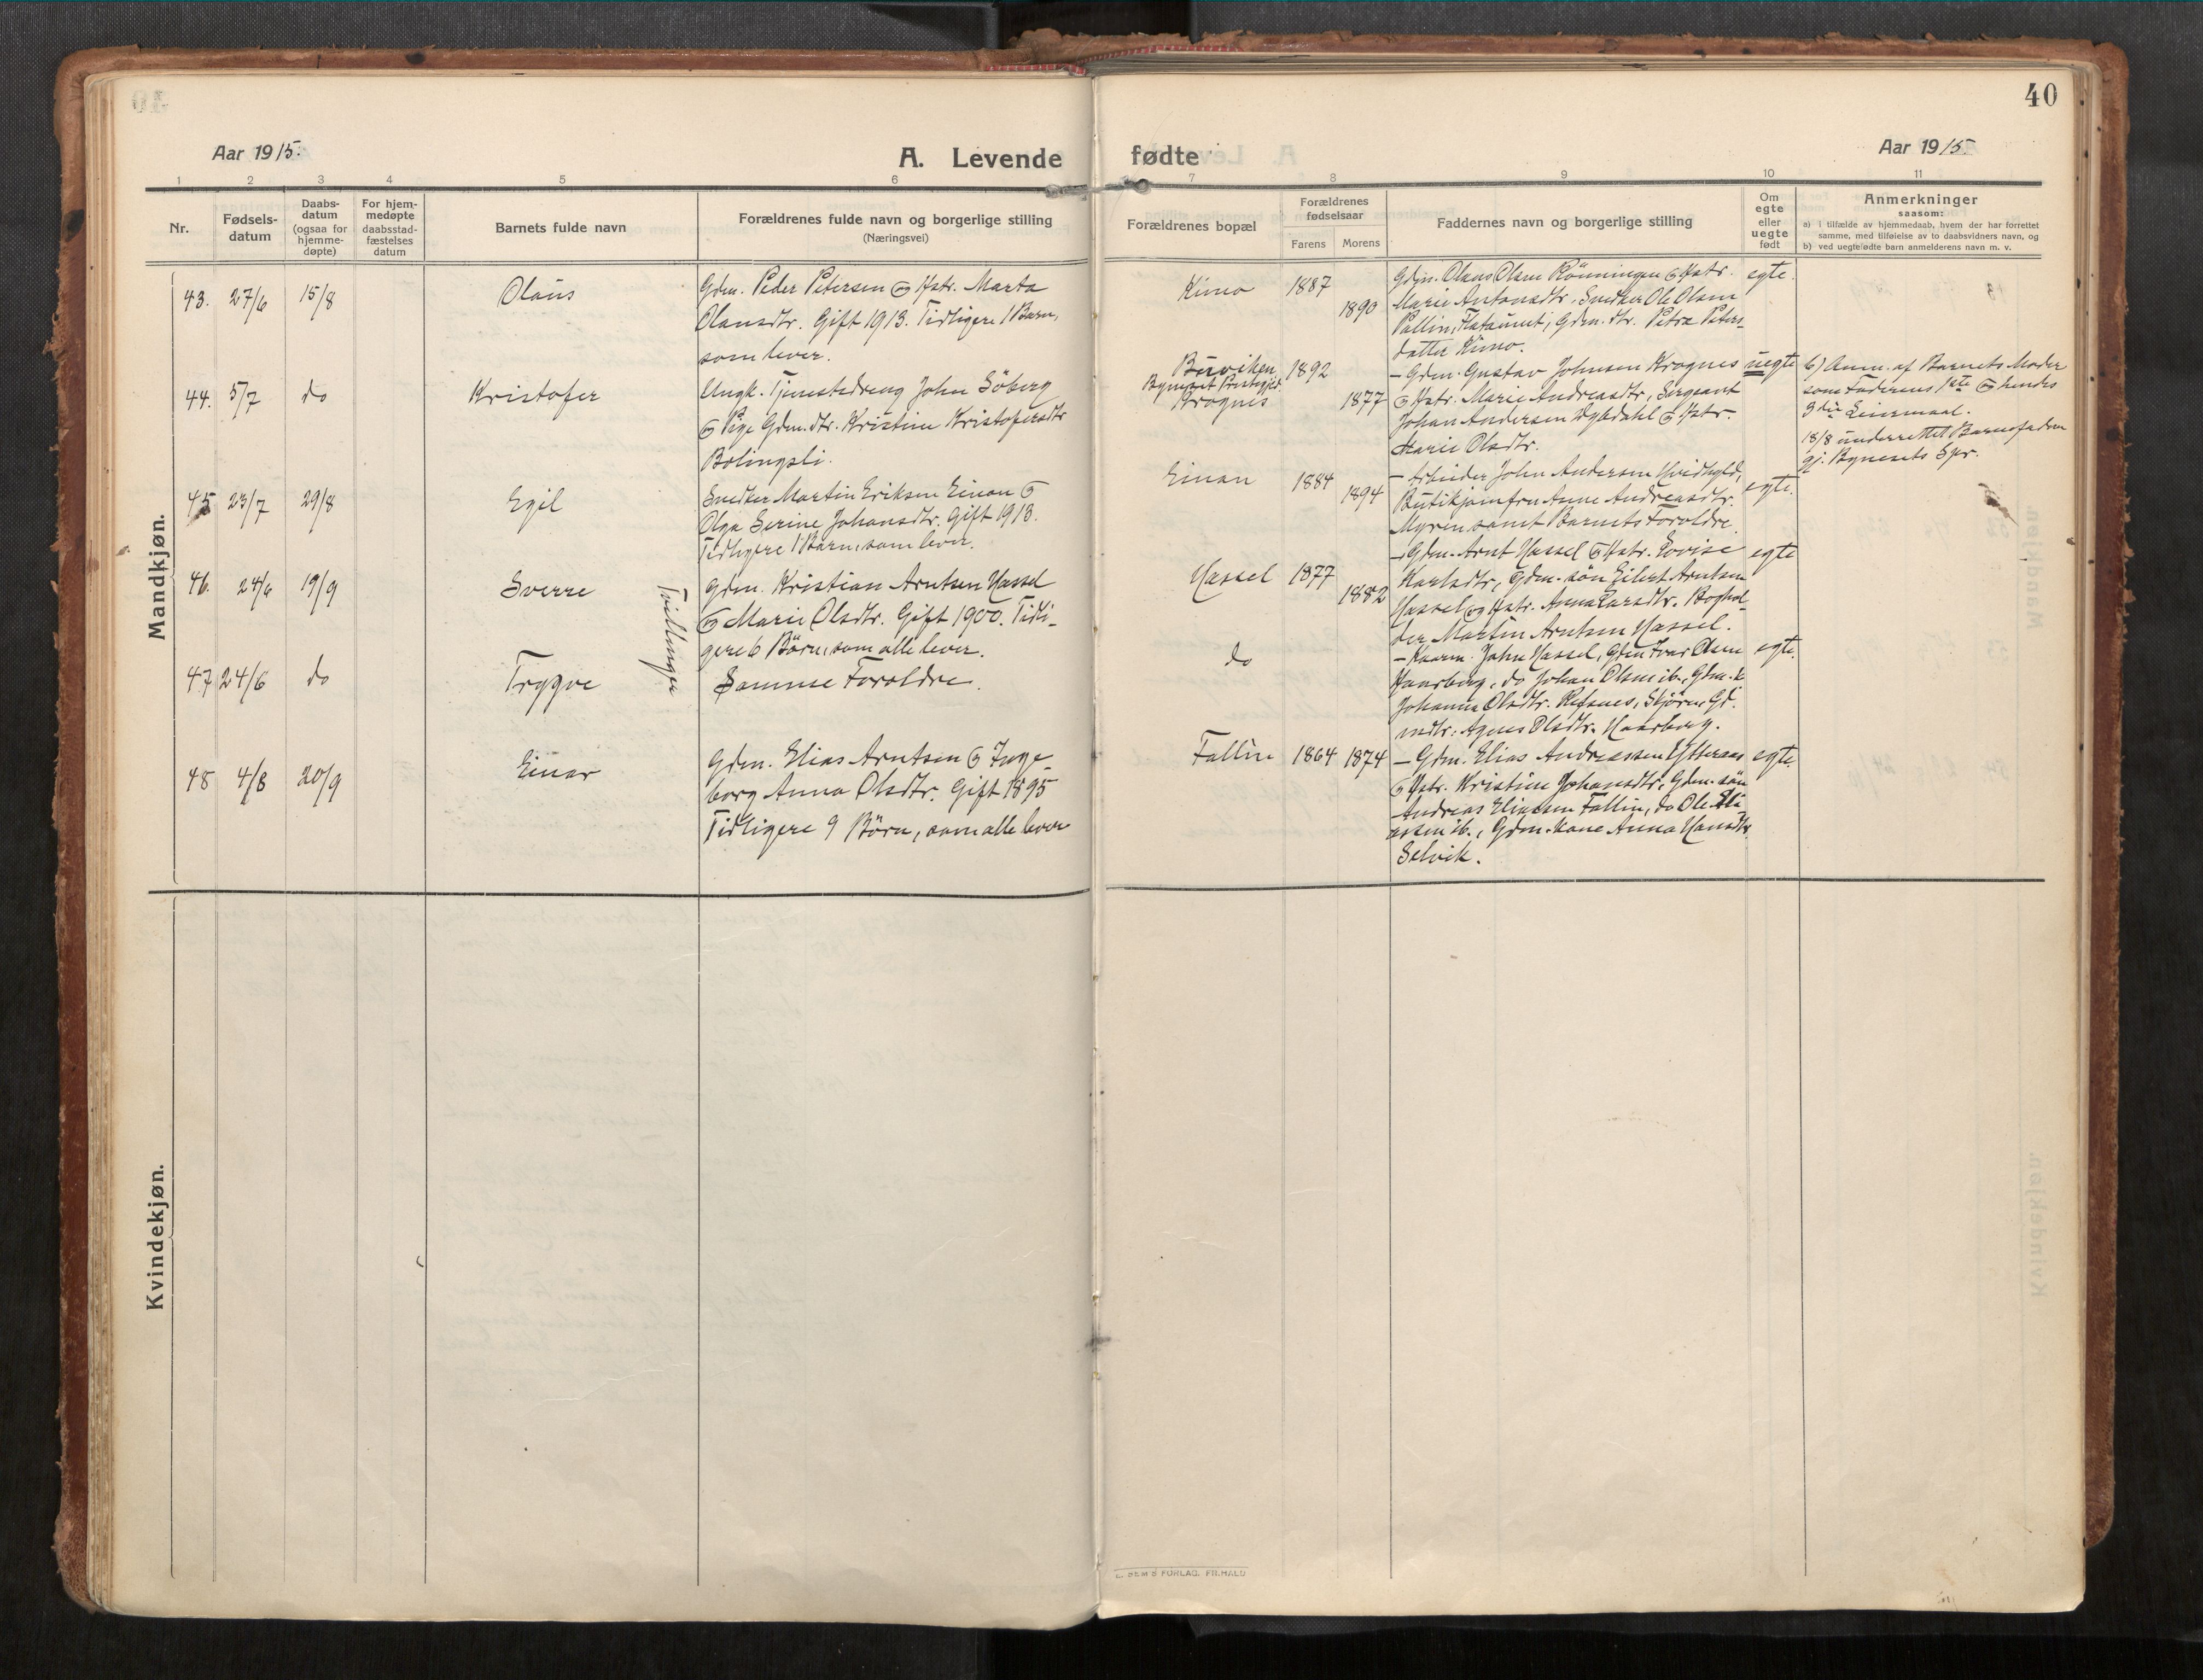 40
Aar 1915.
A. Levende fødte
Aar 1915
1 2 3 4 5 6 7 8 9 10 11
Nr.
Fødsels-
datum
Daabs-
datum
(ogsaa for
hjemme-
døpte)
For hjem-
medøpte
daabsstad-
fæstelses
datum
Barnets fulde navn
Forældrenes fulde navn og borgerlige stilling
(Næringsvei)
Forældrenes bopæl
Forældrenes
fødselsaar
Farens Morens
Faddernes navn og borgerlige stilling
Om
egte
eller
uegte
født
Anmerkninger
saasom:
a) i tilfælde av hjemmedaab, hvem der har forrettet
samme, med tilføielse av to daabsvidners navn, og
b) ved uegtefødte barn anmelderens navn m. v.
Mandkjøn.
43. 27/6 15/8 Olaus
Gdm. Peder Petersen og Hstr. Marta
Olausdtr. Gift 1913. Tidligere 1 Barn,
som lever.
Kimo 1887 1890
Gdm. Olaus Olsen Rönningen og Hstr.
Marie Antonsdtr., Snedker Ole Olsen
Fallin, Gdm. dtr. Petra Peters-
datter Kimo.
egte.
44. 5/7 do Kristofer
Ungk. Tjenestedreng John Söberg
og Pige Gdm. dtr. Kristine Kristofersdtr
Bolingsli.
Buviken
Bynesset Prestegjeld
Krognes
1892 1877
- Gdm. Gustav Johnsen Krognes
og Hstr. Marie Andreasdtr, Sergeant
Johan Andersen og Hstr.
Marie Olsdtr.
uegte
b) Anm. af Barnets Moder
som Faderens 1ste og hendes
Leiermaal.
18/8 underrettet Barnefaderen
gj. Bynesets Spr.
45 23/7 29/8 Egil
Snedker Martin Eriksen Einan og
Olga Serine Johansdtr. Gift 1913.
Tidligere 1 Barn, som lever.
Einan 1884 1894
- Arbeider John Andersen
Butikjomfru Anne Andreasdtr.
Myren samt Barnets Foroldre.
egte.
46. 24/6 19/9 Sverre
Tvillinger
Gdm. Kristian Arntsen Hassel
og Marie Olsdtr. Gift 1900. Tidli-
gere 6 Börn, som alle lever.
Hassel 1877 1882
- Gdm. Arnt Hassel og Hstr. Lovise
Karlsdtr, Gdm. sön Eilert Arntsen
Hassel og Hstr. Anna Larsdtr. Boghol-
der Martin Arntsen Hassel.
egte
47 24/6 do Trygve
Samme Foroldre.
do
- John Hassel, Gdm Ivar Olsen
Haarberg, do Johan Olsen ib., Gdm. k
Johanna Olsdtr. Refsnes, Stjörn, Gd.
mdtr. Agnes Olsdtr. Haarberg.
egte.
48 4/8 20/9 Einar
Gdm. Elias Arntsen og Inge-
borg Anna Olsdtr. Gift 1895
Tidligere 9 Börn, som alle lever
Fallin 1864 1874
- Gdm. Elias Andreassen Ytteraas
og Hstr. Kristine Johansdtr, Gdm. sön
Andreas Eliassen Fallin, do Ole Eli-
assen ib., Gdm. kone Anna Hansdtr.
Selvik.
egte.
Kvindekjøn.
SEM S FORLAG. FR.HALD